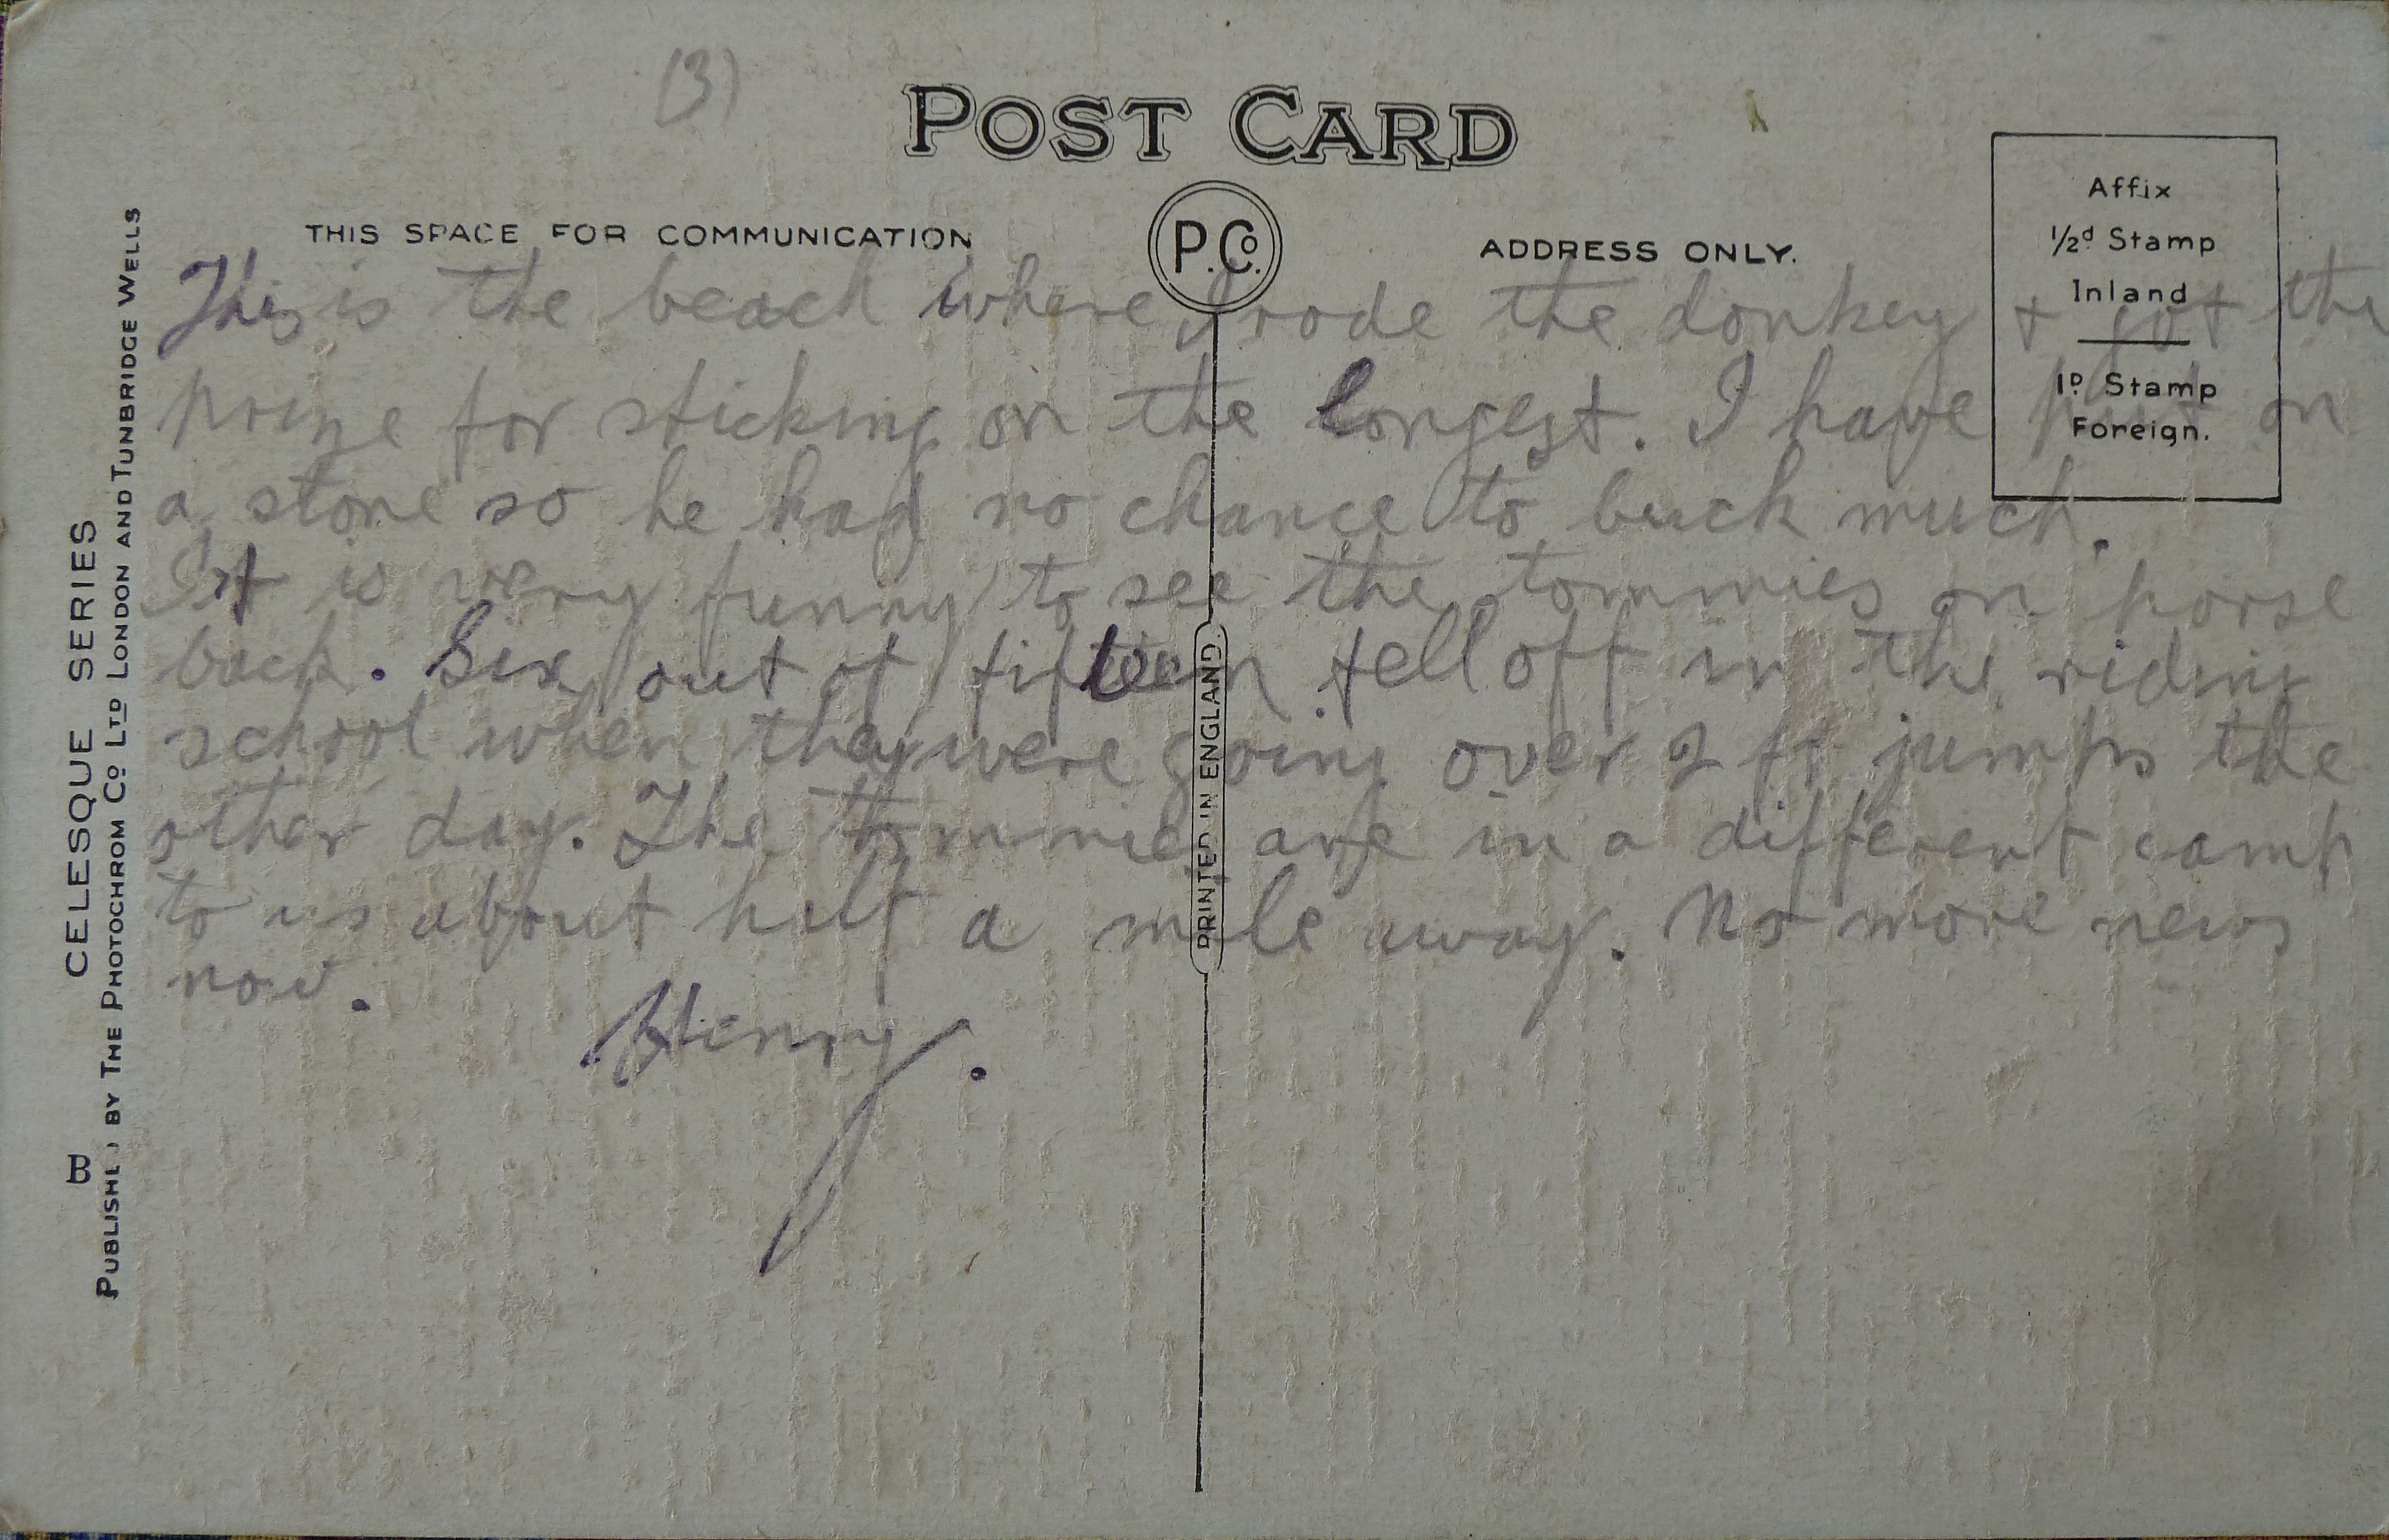 (3)
POST CARD
THIS SPACE FOR COMMUNICATION
P.Co.
ADDRESS ONLY.
Affix
1/2d Stamp
Inland
1D. Stamp
Foreign.
This is the beach where I rode the donkey + got the
prize for sticking on the longest. I have put on
a stone so he had no chance to buck much.
It is very funny to see the tommies on horse
back. Six out of fifteen fell off in the riding
school when they were going over 2 ft jumps the
other day. The tommies are in a different camp
to us about half a mile away. No more news
now.
Henry.
PRINTED IN ENGLAND.
B CELESQUE SERIES
PUBLISHED BY THE PHOTOCHROM CO LTD LONDON AND TUNBRIDGE WELLS